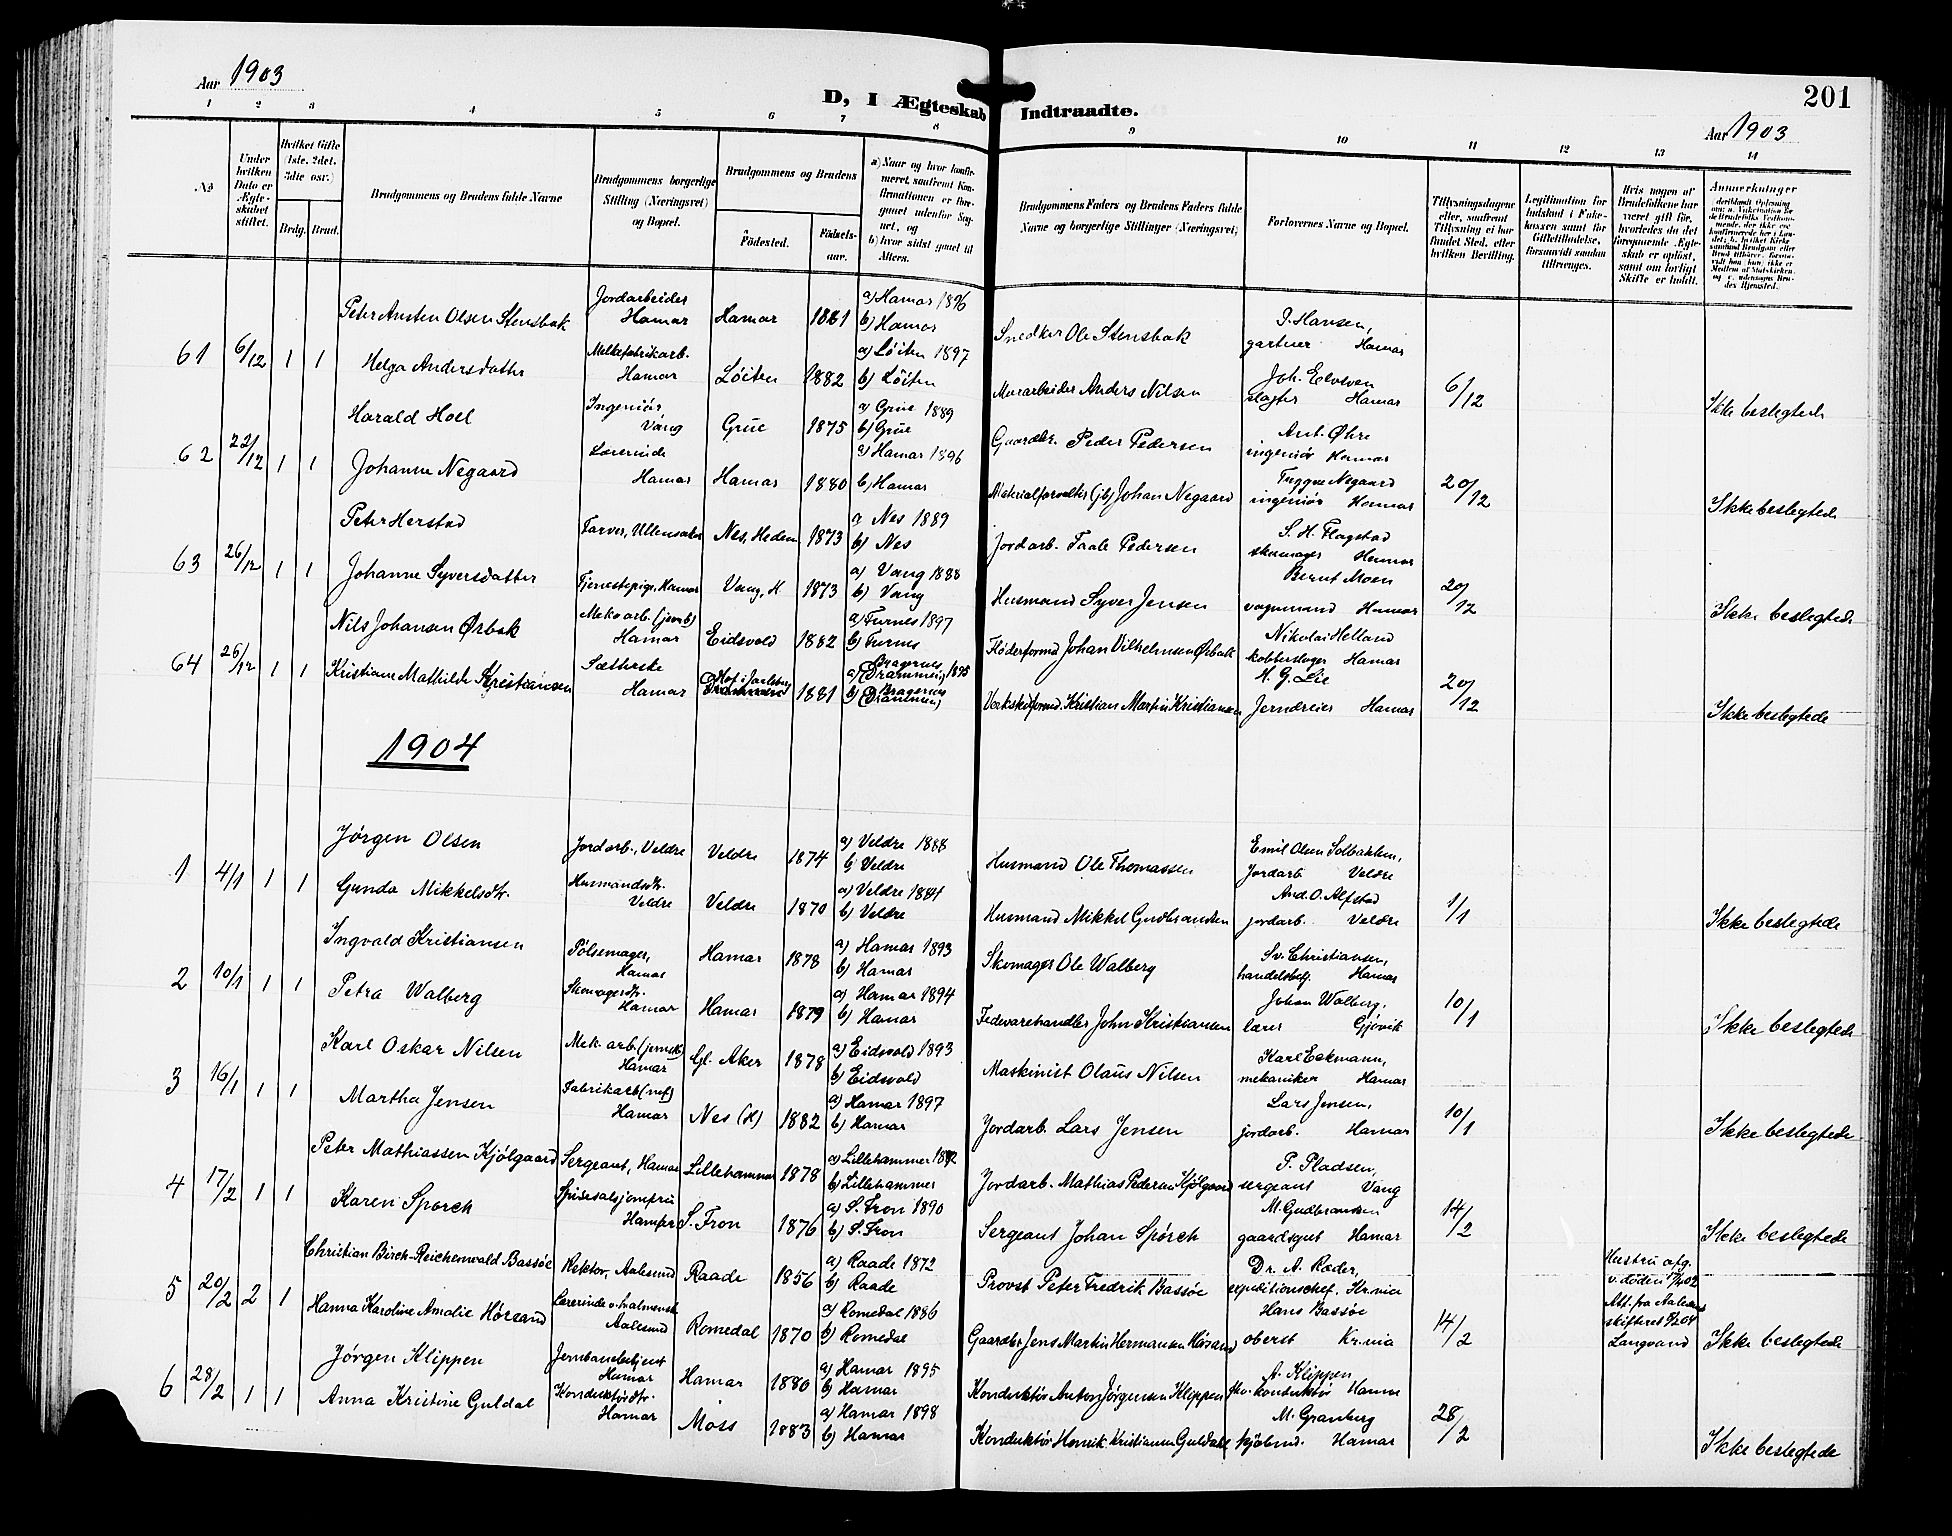 Aar 1903
D, I Ægteskab Indtraadte.
201
Aar 1903
1 2 3 4 5 6 7 8 9 10 11 12 13 14
No
Under hvilken Dato er Ægteskabet stiftet.
Hvilket Gifte (1ste, 2det, 3dte osv.)
Brdg. Brud.
Brudgommens og Brudens fulde Navne
Brudgommens borgerlige Stilling (Næringsvei) og Bopæl.
Brudgommens og Brudens
Fødested.
Fødselsaar.
a) Naar og hvor konfirmeret, saafremt Konfirmationen er foregaaet udenfor Sognet, og
b) hvor sidst gaaet til Alters.
Brudgommens Faders og Brudens Faders fulde Navne og borgerlige Stillinger (Næringsvei)
Forlovernes Navne og Bopæl.
Tillysningsdagene eller, saafremt Tillysning ei har fundet Sted, efter hvilken Bevilling.
Legitimation for Indskud i Enkekassen samt for Giftetilladelse, forsaavidt saadan tiltrænges.
Hvis nogen af Brudefolkene har været gift før, hvorledes da det foregaaende Ægteskab er opløst, samt om lovligt Skifte er holdt.
Anmærkninger
61 6/12 1 1
Peter Austen Olsen Stensbak Jordarbeider Hamar Hamar 1881 a) Hamar 1896 b) Hamar Snedker Ole Stensbak P. Hansen, gartner Hamar
Helga Andersdatter Melkefabrikarb. Hamar Løiten 1882 a) Løiten 1897 b) Løiten Murarbeider Anders Nilsen Joh. Elvsven slagter Hamar 6/12 Ikke beslegtede
62 22/12 1 1
Harald Hoel Ingeniør, Vang Grue 1875 a) Grue 1889 b) Grue Gaardbr. Peder Pedersen Ant. Øhre ingeniør Hamar
Johanne Negaard Lærerinde Hamar Hamar 1880 a) Hamar 1896 b) Hamar Materialforvalter (jb) Johan Negaard Trygve Negaard ingeniør Hamar 20/12 Ikke beslegtede
63 26/12 1 1
Peter Herstad Farver, Ullensaker Nes, Hedem 1873 a) Nes 1889 b) Nes Jordarb. Taale Pedersen S. H. Flagstad skomager Hamar
Johanne Syversdatter Tjenestepige, Hamar Vang, H 1873 a) Vang 1888 b) Vang Husmand Syver Jensen Bernt Moen vognmand Hamar 20/12 Ikke beslegtede
64 26/12 1 1
Nils Johansen Ørbak Mek. arb. (jernb) Hamar Eidsvold 1882 a) Furnes 1897 b) Furnes Fløderformd Johan Vilhelmsen Ørbak Nikolai Helland kobberslager Hamar
Kristiane Mathilde Kristiansen Hamar Hof i Jarlsberg 1881 a) Bragernes (Drammen) 1895 b) Bragernes (Drammen) Verkstedformd. Kristian Martin Kristiansen M. G. Lie Jerndreier Hamar 20/12 Ikke beslegtede
1904
1 4/1 1 1
Jørgen Olsen Jordarb., Veldre Veldre 1874 a) Veldre 1888 b) Veldre Husmand Ole Thomassen Emil Olsen Solbakken, Jordarb Veldre
Gunda Mikkelsdtr. Husmandsdtr. Veldre Veldre 1870 a) Veldre 1884 b) Veldre Husmand Mikkel Gudbrandsen And. O. Alfstad jordarb. Veldre 1/1 Ikke beslegtede
2 10/1 1 1
Ingvald Kristiansen Pølsemager, Hamar Hamar 1878 a) Hamar 1893 b) Hamar Skomager Ole Walberg Sv. Christiansen, handelsbetj. Hamar
Petra Walberg Skomagerdtr. Hamar Hamar 1879 a) Hamar 1894 b) Hamar Fedevarehandler John Kristiansen Johan Walberg, lærer Gjøvik 10/1 Ikke beslegtede
3 16/1 1 1
Karl Oskar Nilsen Mek. arb. (jernsk) Hamar Gl. Aker 1878 a) Eidsvold 1893 b) Eidsvold Maskinist Olaus Nilsen Karl Eckmann, mekaniker Hamar
Martha Jensen Fabrikarb. Hamar Nes (H) 1882 a) Hamar 1897 b) Hamar Jordarb. Lars Jensen Lars Jensen, jordarb. Hamar 10/1 Ikke beslegtede
4 17/2 1 1
Peter Mathiassen Kjølgaard Sergeant, Hamar Lillehammer 1878 a) Lillehammer 1892 b) Lillehammer Jordarb. Mathias Pedersen Kjølgaard P. Pladsen, sergeant Vang
Karen Spørck Spisesalsjomfru Hamar S. Fron 1876 a) S. Fron 1890 b) S. Fron Sergeant Johan Spørck M. Gudbrandsen gaardsgut Hamar 14/2 Ikke beslegtede
5 20/2 2 1
Christian Birch-Reichenwald Bassøe Rektor, Aalesund Raade 1856 a) Raade 1872 b) Raade Provst Peter Fredrik Bassøe Dr. A. Ræder, expeditionschef, Kr.nia Hustru afg. v. døden Att. fra Aalesund skifteret Langvand
Hanna Karoline Amalie Hørsand Lærerinde v. almuesk. Aalesund Romedal 1870 a) Romedal 1886 b) Romedal Gaardbr. Jens Martin Hermansen Hørsand Hans Bassøe oberst Kr.nia 14/2 Ikke beslegtede
6 28/2 1 1
Jørgen Klippen Jernbanebetjent Hamar Hamar 1880 a) Hamar 1895 b) Hamar Konduktør Anton Jørgensen Klippen A. Klippen, konduktør Hamar
Anna Kristine Guldal Konduktørdtr. Hamar Moss 1883 a) Hamar 1898 b) Hamar Konduktør Henrik Kristiansen Guldahl M. Granberg kjøbmd. Hamar 28/2 Ikke beslegtede